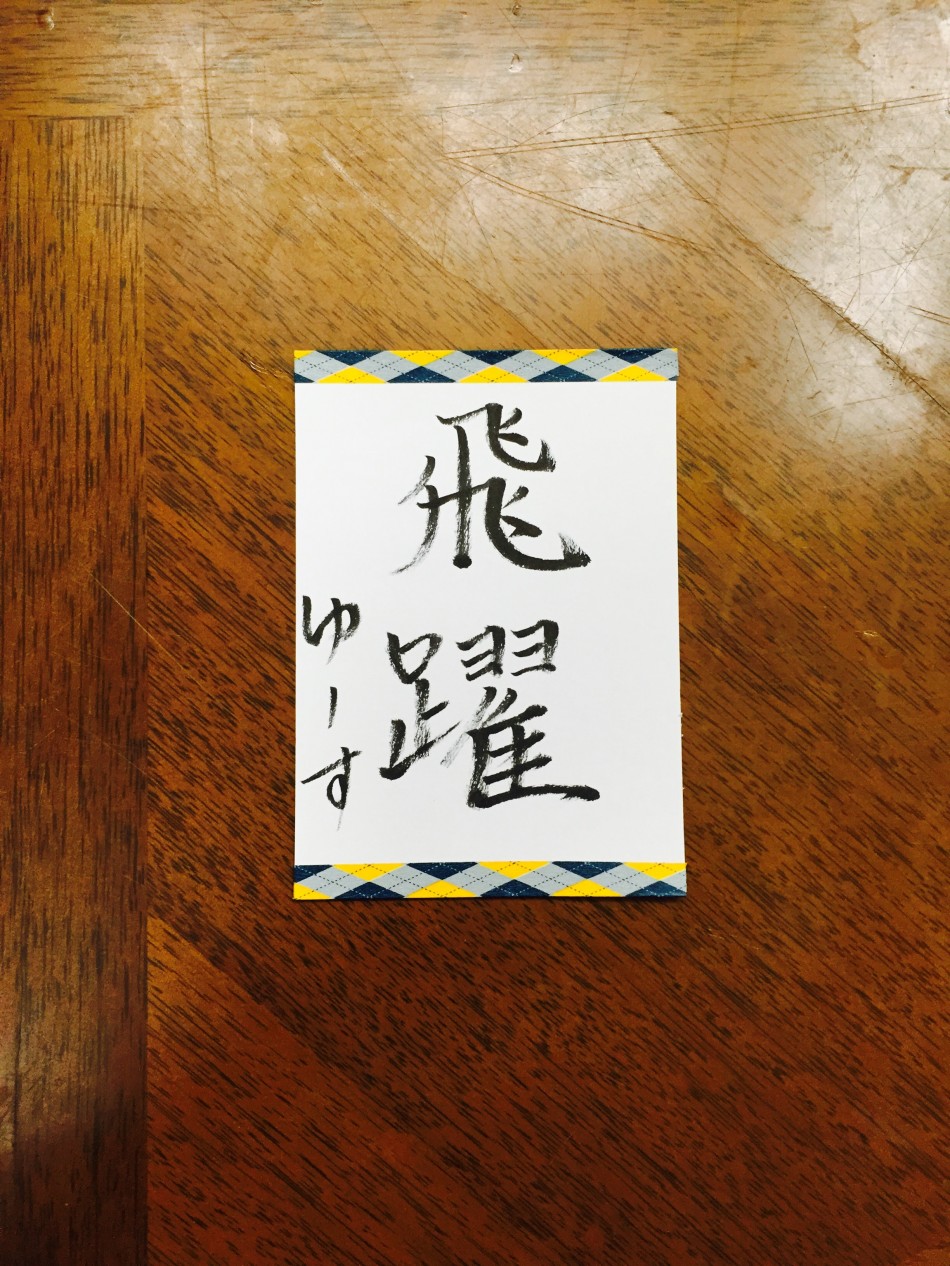 飛躍
ゆーす